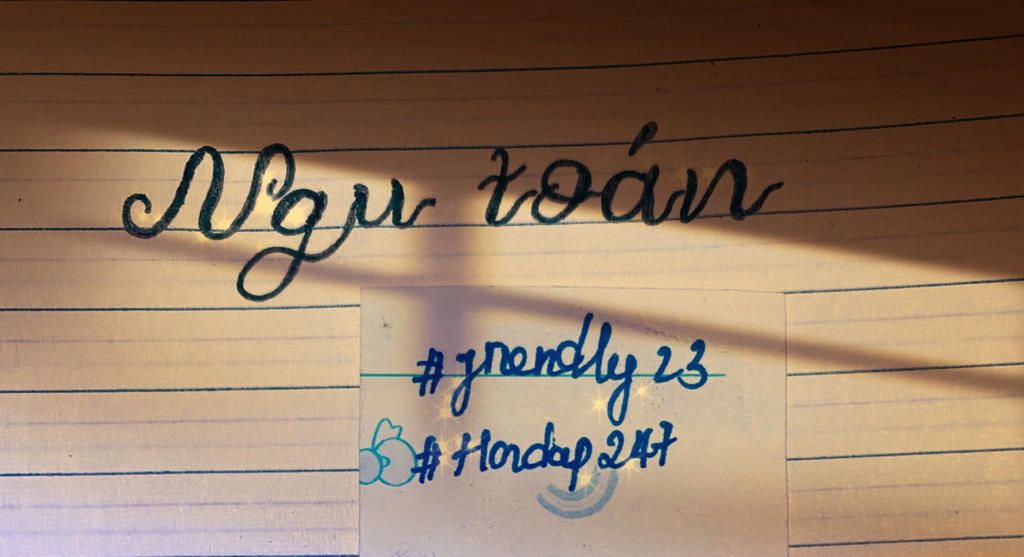 Ngu toán
#friendly 23
#Hoidap247